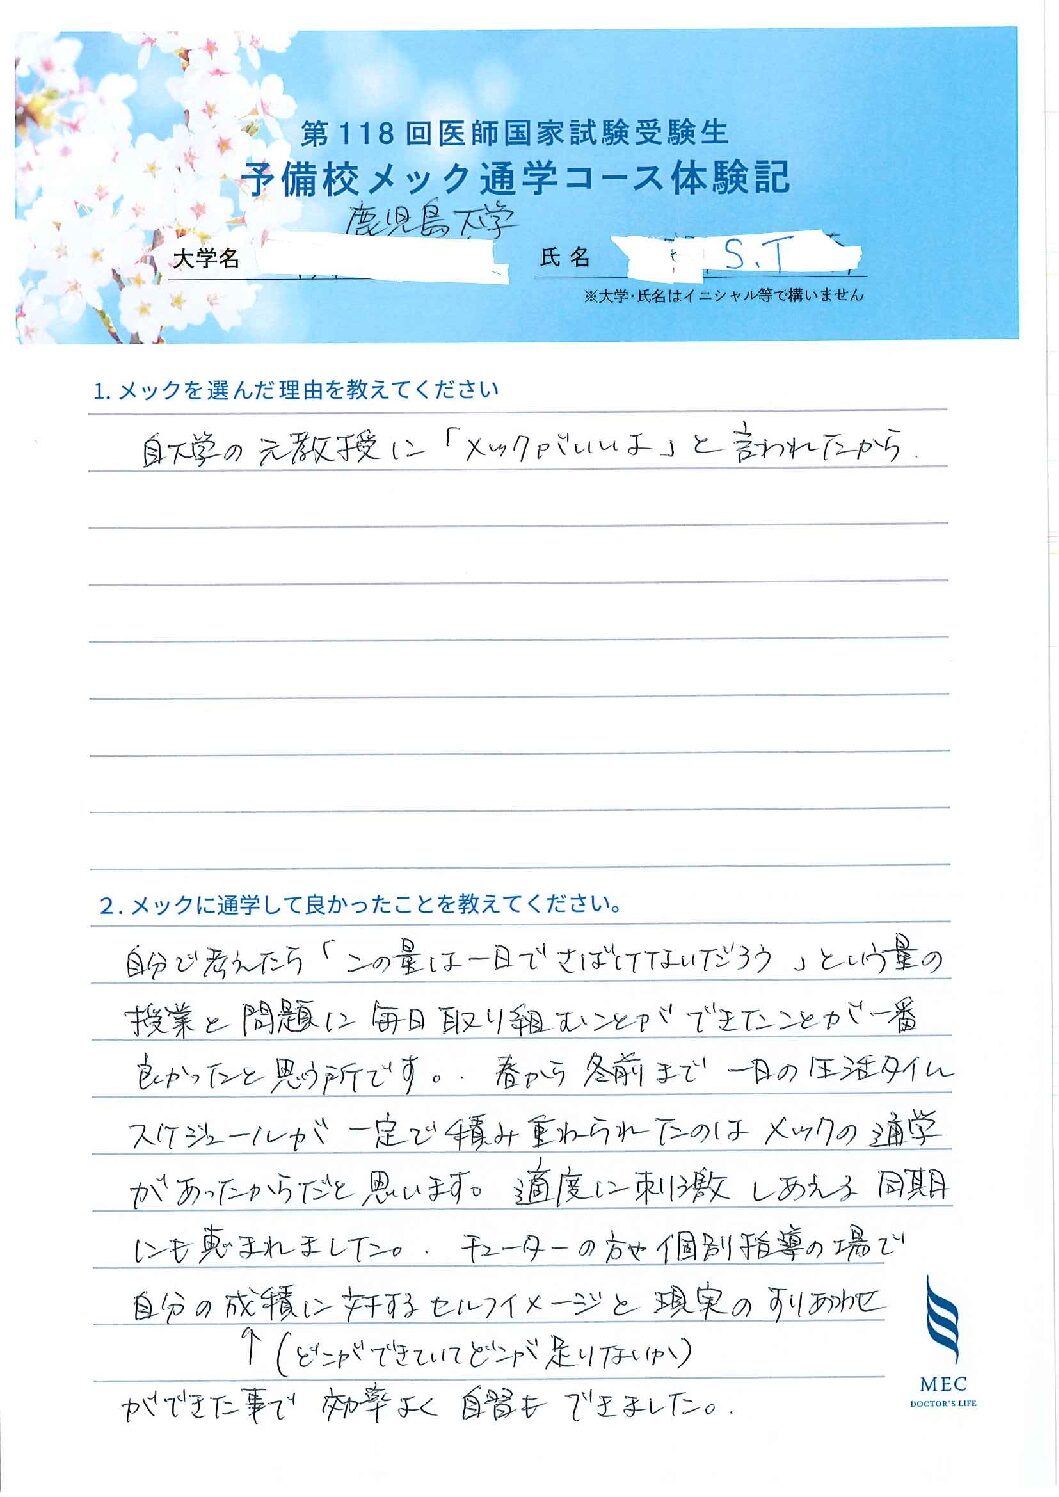 第118回医師国家試験受験生
予備校メック通学コース体験記
鹿児島大学
大学名
氏名 S.T
※大学・氏名はイニシャル等で構いません
1. メックを選んだ理由を教えてください
自大学の元教授に「メックがいいよ」と言われたから.
2. メックに通学して良かったことを教えてください。
自分で考えたら「この量は一日でさばけてないだろう」という量の
授業と問題に毎日取り組むことができたことが一番
良かったと思う所です。. 春から冬前まで一日の生活タイム
スケジュールが一定で積み重ねられたのはメックの通学
があったからだと思います。適度に刺激しあえる同期
にも恵まれました。. チューターの方や個別指導の場で
自分の成績に対するセルフイメージと現実のすりあわせ
↑(どこができていてどこが足りないか)
ができた事で効率よく自習もできました。.
MEC
DOCTOR'S LIFE